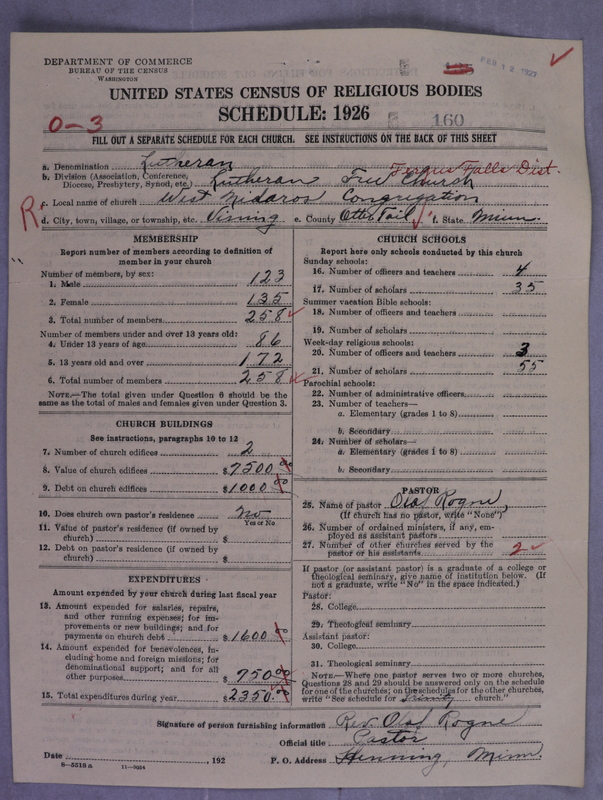 DEPARTMENT OF COMMERCE
BUREAU OF THE CENSUS
WASHINGTON
FEB 12 1927
UNITED STATES CENSUS OF RELIGIOUS BODIES
SCHEDULE: 1926
0-3
160
FILL OUT A SEPARATE SCHEDULE FOR EACH CHURCH. SEE INSTRUCTIONS ON THE BACK OF THIS SHEET
a. Denomination Lutheran
Fergus Falls Dist.
b. Division (Association, Conference, Diocese, Presbytery, Synod, etc.) Lutheran Free Church
R
c. Local name of church West Nidaros Congregation
d. City, town, village, or township, etc. Vining e. County Otter Tail f. State Minn.
MEMBERSHIP
Report number of members according to definition of
member in your church
Number of members, by sex:
1. Male 123
2. Female 135
3. Total number of members 258
Number of members under and over 13 years old:
4. Under 13 years of age 86
5. 13 years old and over 172
6. Total number of members 258
NOTE.—The total given under Question 6 should be the
same as the total of males and females given under Question 3.
CHURCH BUILDINGS
See instructions, paragraphs 10 to 12
7. Number of church edifices 2
8. Value of church edifices $7500.00
9. Debt on church edifices $1000.00
10. Does church own pastor's residence No
Yes or No
11. Value of pastor's residence (if owned by
church) $
12. Debt on pastor's residence (if owned by
church) $
EXPENDITURES
Amount expended by your church during last fiscal year
13. Amount expended for salaries, repairs,
and other running expenses; for im-
provements or new buildings; and for
payments on church debt $1600.00
14. Amount expended for benevolences, in-
cluding home and foreign missions; for
denominational support; and for all
other purposes $750.00
15. Total expenditures during year $2350.00
CHURCH SCHOOLS
Report here only schools conducted by this church
Sunday schools:
16. Number of officers and teachers 4
17. Number of scholars 35
Summer vacation Bible schools:
18. Number of officers and teachers
19. Number of scholars
Week-day religious schools:
20. Number of officers and teachers 3
21. Number of scholars 55
Parochial schools:
22. Number of administrative officers
23. Number of teachers—
a. Elementary (grades 1 to 8)
b. Secondary
24. Number of scholars—
a. Elementary (grades 1 to 8)
b. Secondary
PASTOR
25. Name of pastor Olaf Rogne,
(If church has no pastor, write "None")
26. Number of ordained ministers, if any, em-
ployed as assistant pastors
27. Number of other churches served by the
pastor or his assistants 2
If pastor (or assistant pastor) is a graduate of a college or
theological seminary, give name of institution below. (If
not a graduate, write "No" in the space indicated.)
Pastor:
28. College
29. Theological seminary
Assistant pastor:
30. College
31. Theological seminary
NOTE.—Where one pastor serves two or more churches,
Questions 28 and 29 should be answered only on the schedule
for one of the churches; on the schedules for the other churches,
write "See schedule for Trinity church."
Signature of person furnishing information Rev. Olaf Rogne
Official title Pastor
Date , 192 P. O. Address Henning, Minn.
8-5519 a 11-9024